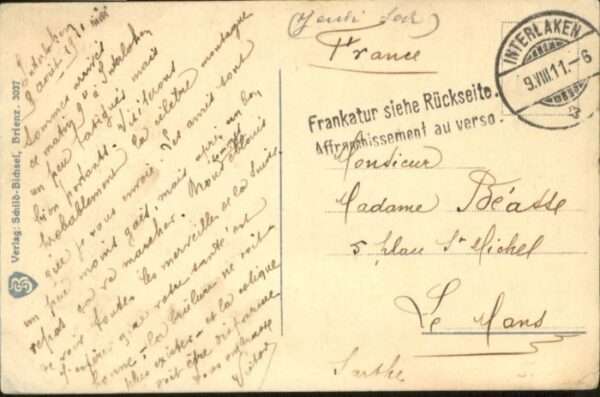 Interlaken
9 août 1911 midi
Sommes arrivés
ce matin à Interlaken
un peu fatigués mais
bien portants. Visiterons
probablement la célèbre montagne
que je vous envoie. Les amis sont
un peu moins gais, mais après un bon
repos ça va marcher. Nous allons
de voir toutes les merveilles de la Suisse.
J'espère que votre santé est
bonne - la brûlure ne doit
plus exister - et la colique
doit être disparue
vous embrasse
Victor
Verlag: Schild-Bichsel, Brienz. 3037
SB
(Jeudi soir)
France
INTERLAKEN
9.VIII.11.-6
Frankatur siehe Rückseite.
Affranchissement au verso.
Monsieur
Madame Béasse
5 place St Michel
Le Mans
Sarthe